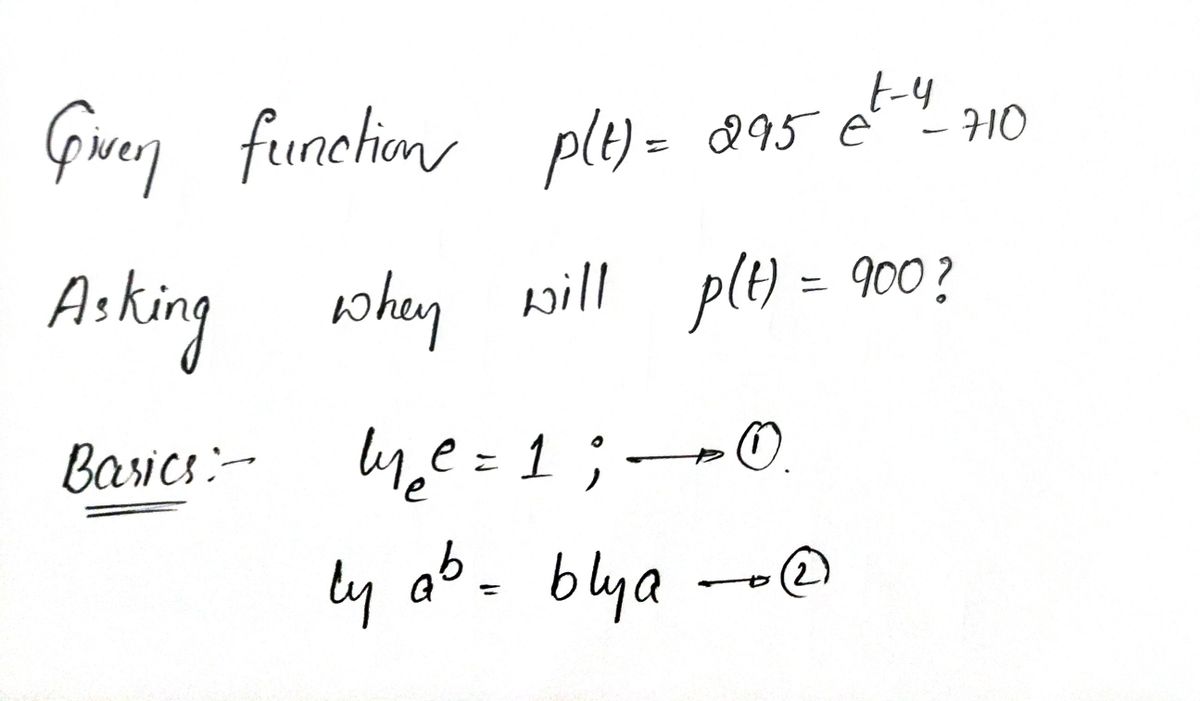 Given function p(t) = 295 e^{t-4} - 710
Asking when will p(t) = 900?
Basics:- ln_e e = 1 ; → ①.
ln a^b = b ln a → ②